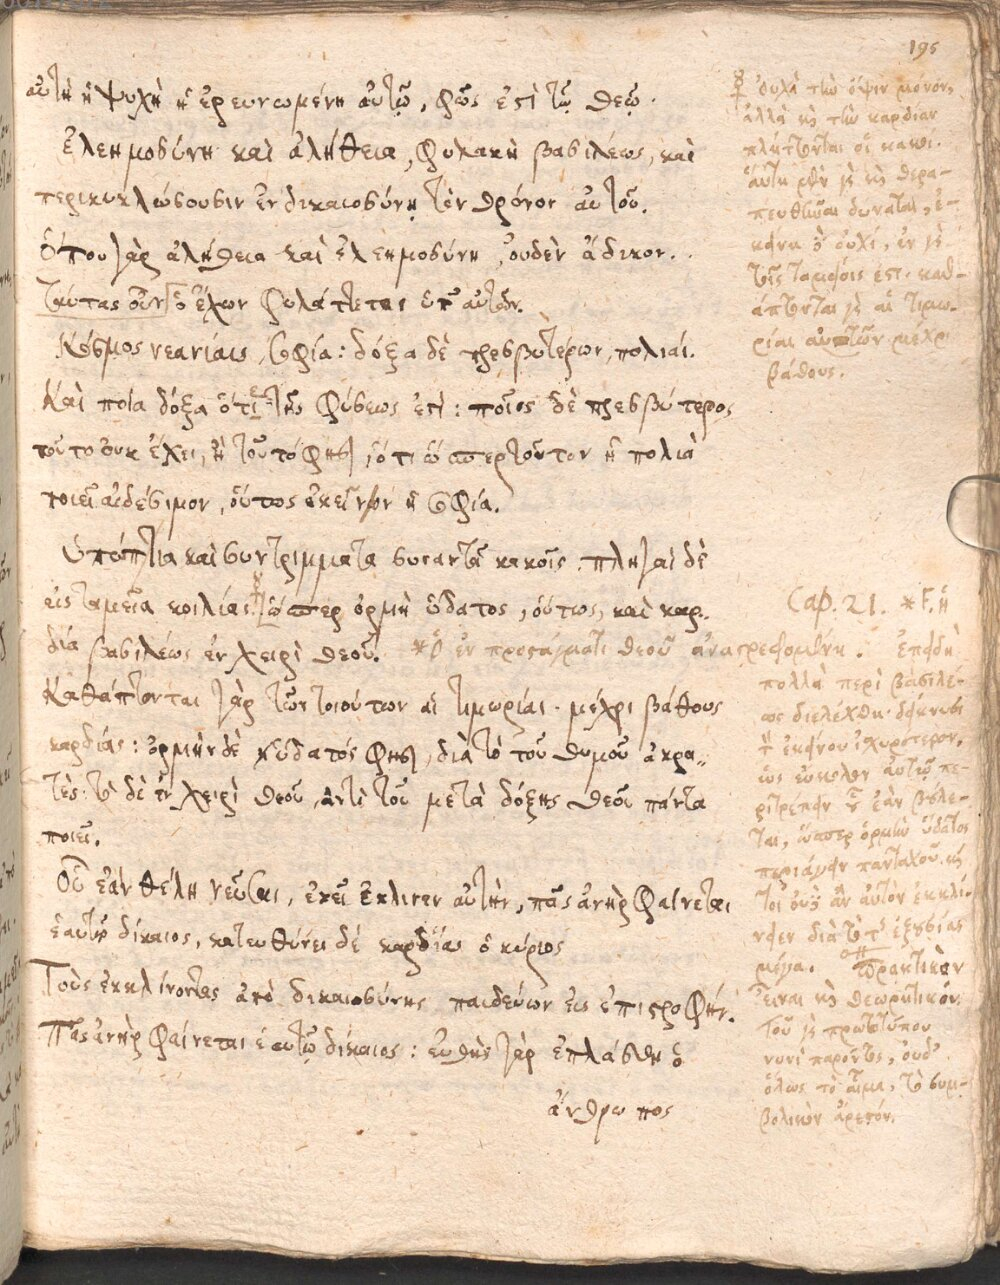 195
αὐτὴ ἡ ψυχὴ ἡ ἐρευνωμένη αὐτῷ, φῶς ἐστὶ τῷ θεῷ.
Ἐλεημοσύνη καὶ ἀλήθεια, φυλακὴ βασιλέως, καὶ
περικυκλώσουσιν ἐν δικαιοσύνῃ τὸν θρόνον αὐτοῦ.
Ὅπου γὰρ ἀλήθεια καὶ ἐλεημοσύνη, οὐδὲν ἄδικον.
ταύτας οὖν ὁ ἔχων φυλάττεται ὑπ' αὐτῶν.
Κόσμος νεανίαις, σοφία: δόξα δὲ πρεσβυτέρων, πολιαί.
Καὶ ποία δόξα ὅτι τῆς φύσεώς ἐστι: ποῖος δὲ πρεσβύτερος
τοῦτο οὐκ ἔχει, ἢ τοῦτό φησι, ὅτι ὥσπερ τοῦτον ἡ πολιὰ
ποιεῖ αἰδέσιμον, οὕτως ἐκεῖνον ἡ σοφία.
Ὑπώπια καὶ συντρίμματα συναντᾶ κακοῖς. πληγαὶ δὲ
εἰς ταμεῖα κοιλίας. ὥσπερ ὁρμὴ ὕδατος, οὕτως καὶ καρ-
δία βασιλέως ἐν χειρὶ θεοῦ.
Καθάπτονται γὰρ τῶν τοιούτων αἱ τιμωρίαι μέχρι βάθους
καρδίας: ὁρμὴν δὲ ὕδατός φησι, διὰ τὸ τοῦ θυμοῦ ἀκρα-
τές: τὸ δὲ ἐν χειρὶ θεοῦ, ἀντὶ τοῦ μετὰ δόξης θεοῦ πάντα
ποιεῖ.
Οὗ ἐὰν θέλῃ νεῦσαι, ἐκεῖ ἔκλινεν αὐτήν, πᾶς ἀνὴρ φαίνεται
ἑαυτῷ δίκαιος, κατευθύνει δὲ καρδίας ὁ κύριος
Τοὺς ἐκκλίνοντας ἀπὸ δικαιοσύνης παιδεύων εἰς ἐπιστροφήν.
Πᾶς ἀνὴρ φαίνεται ἑαυτῷ δίκαιος: εὐθὴς γὰρ ἐπλάσθη ὁ
ἄνθρωπος
οὐ τὴν ὄψιν μόνον,
ἀλλὰ κὶ τὴν καρδίαν
πλήττονται οἱ κακοί.
αὕτη μὲν γὰρ κὶ θερα-
πευθῆναι δύναται, ἐ-
κείνη δ' οὐχί, ἐν γὰρ
τοῖς ταμείοις ἐστί. καθ-
άπτονται γὰρ αἱ τιμω-
ρίαι αὐτῶν μέχρι
βάθους.
Cap. 21. * F. ἢ
* Ὁ ἐν προστάγματι θεοῦ ἀναστρεφομένη. Ἐπειδὴ
πολλὰ περὶ βασιλέ-
ως διελέχθη δείκνυσι
τὸν ἐκείνου ἰσχυρότερον,
ὡς εὔκολον αὐτῷ πε-
ριτρέπειν ὃν ἐὰν βούλε-
ται, ὥσπερ ὁρμὴν ὕδατος
περιάγειν πανταχοῦ. κὶ
αὐτὸν ἐκκλί-
νειεν διὰ τὸ τῆς ἐξουσίας
μέγα. Πρακτικὸν
εἶναι κὶ θεωρητικόν.
τοῦ γὰρ πρωτοτύπου
νυνὶ παρόντος, οὐδ'
ὅλως τὸ αἷμα, τὸ συμ-
βολικὸν ἀρεστόν.